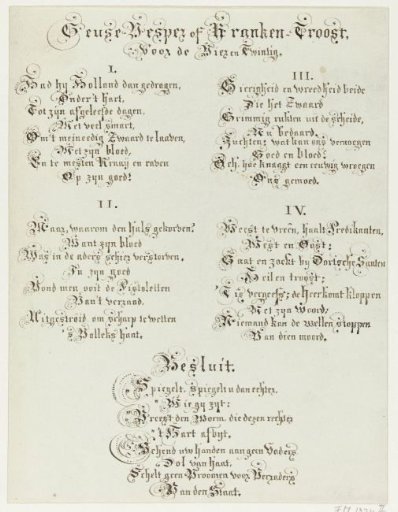 Geuse-Vesper of Kranken-Troost,
Voor de Vier en Twintig.
I.
Had hy Holland dan gedragen,
Onder 't hart,
Tot zyn afgeleefde dagen,
Met veel smart,
Om 't meineedig Zwaard te laaven,
Met zyn bloed,
En te mesten Kraay en raven
Op zyn goed?
II.
Maar, waarom den hals gekorven?
Want zyn bloed
Was in de aders schier verstorven,
In zyn goed
Vond men ooit de Pistoletten
Van't verraad,
Uitgestroid om scharp te wetten
's Volleks haat.
III.
Gierigheid en wreedheid beide
Die het Zwaard
Grimmig rukten uit de scheide,
Nu bedaard,
Zuchten: wat kan ons vernoegen
Goed en bloed?
Ach, hoe knaagt een eeuwig wroegen
Ons gemoed.
IV.
Weest te vreen, haalt Predikanten,
West en Oost:
Gaat en zoekt by Dortsche Santen
Heil en troost;
'Tis vergeefs; de Heer komt kloppen
Met zyn Woord,
Niemand kan de wellen stoppen
Van dien moord.
Besluit.
Spiegelt, spiegelt u dan echter,
Wie gy zyt:
Vreest den Worm, die dezen rechter
't Hart afbyt.
Schend uw handen aan geen Vaders
Dol van haat,
Schelt geen Vroomen voor Verraders
Van den Staat.